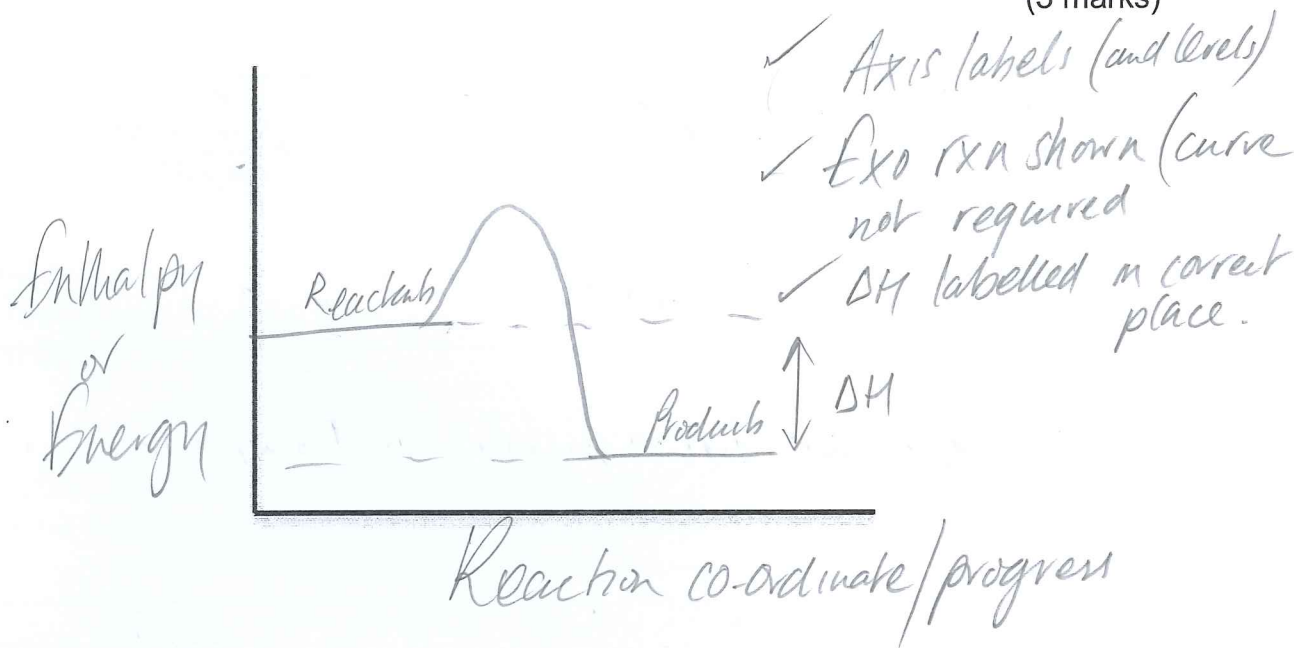 (3 marks)
✓ Axis labels (and levels)
✓ Exo rxn shown (curve
not required
✓ ΔH labelled in correct
place.
Enthalpy
or
Energy
Reactants
Products
ΔH
Reaction co-ordinate/progress